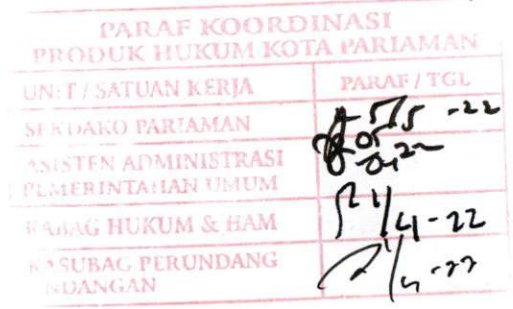 PARAF KOORDINASI
PRODUK HUKUM KOTA PARIAMAN
UNIT / SATUAN KERJA PARAF / TGL
SEKDAKO PARIAMAN 5/5 -22
ASISTEN ADMINISTRASI
PEMERINTAHAN UMUM
KABAG HUKUM & HAM 21/4-22
KASUBAG PERUNDANG
UNDANGAN /4-22